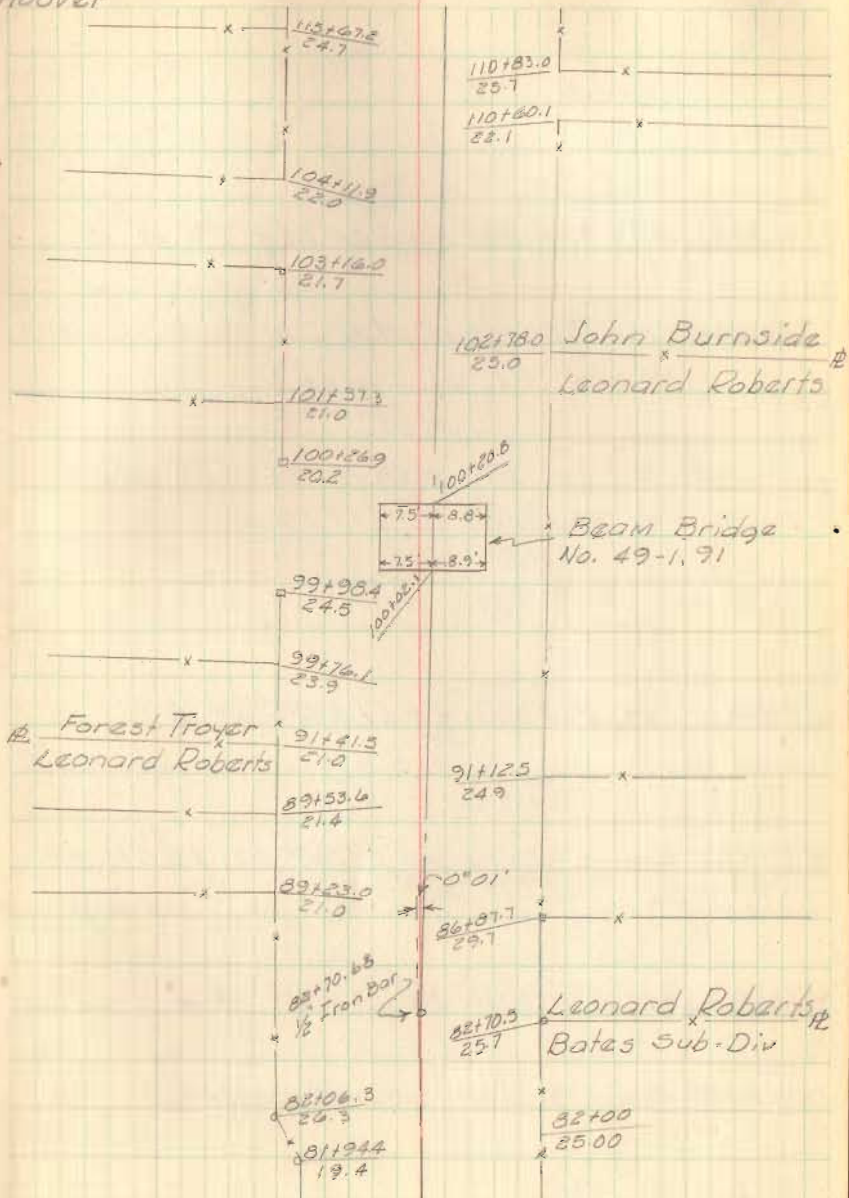 115+67.2
24.7
110+83.0
25.7
110+60.1
22.1
104+11.9
22.0
103+16.0
21.7
102+78.0 John Burnside
25.0 Leonard Roberts
101+57.3
21.0
100+26.9
20.2
100+20.8
7.5' 8.8'
Beam Bridge
No. 49-1.91
7.5' 8.9'
100+02.1
99+98.4
24.5
99+76.1
23.9
Forest Troyer
Leonard Roberts
91+41.5
21.0
91+12.5
24.9
89+53.6
21.4
0°01'
89+23.0
21.0
86+87.7
29.7
82+70.68
1/2" Iron Bar
82+70.5
25.7
Leonard Roberts
Bates Sub-Div
82+06.3
26.3
82+00
25.00
81+94.4
19.4